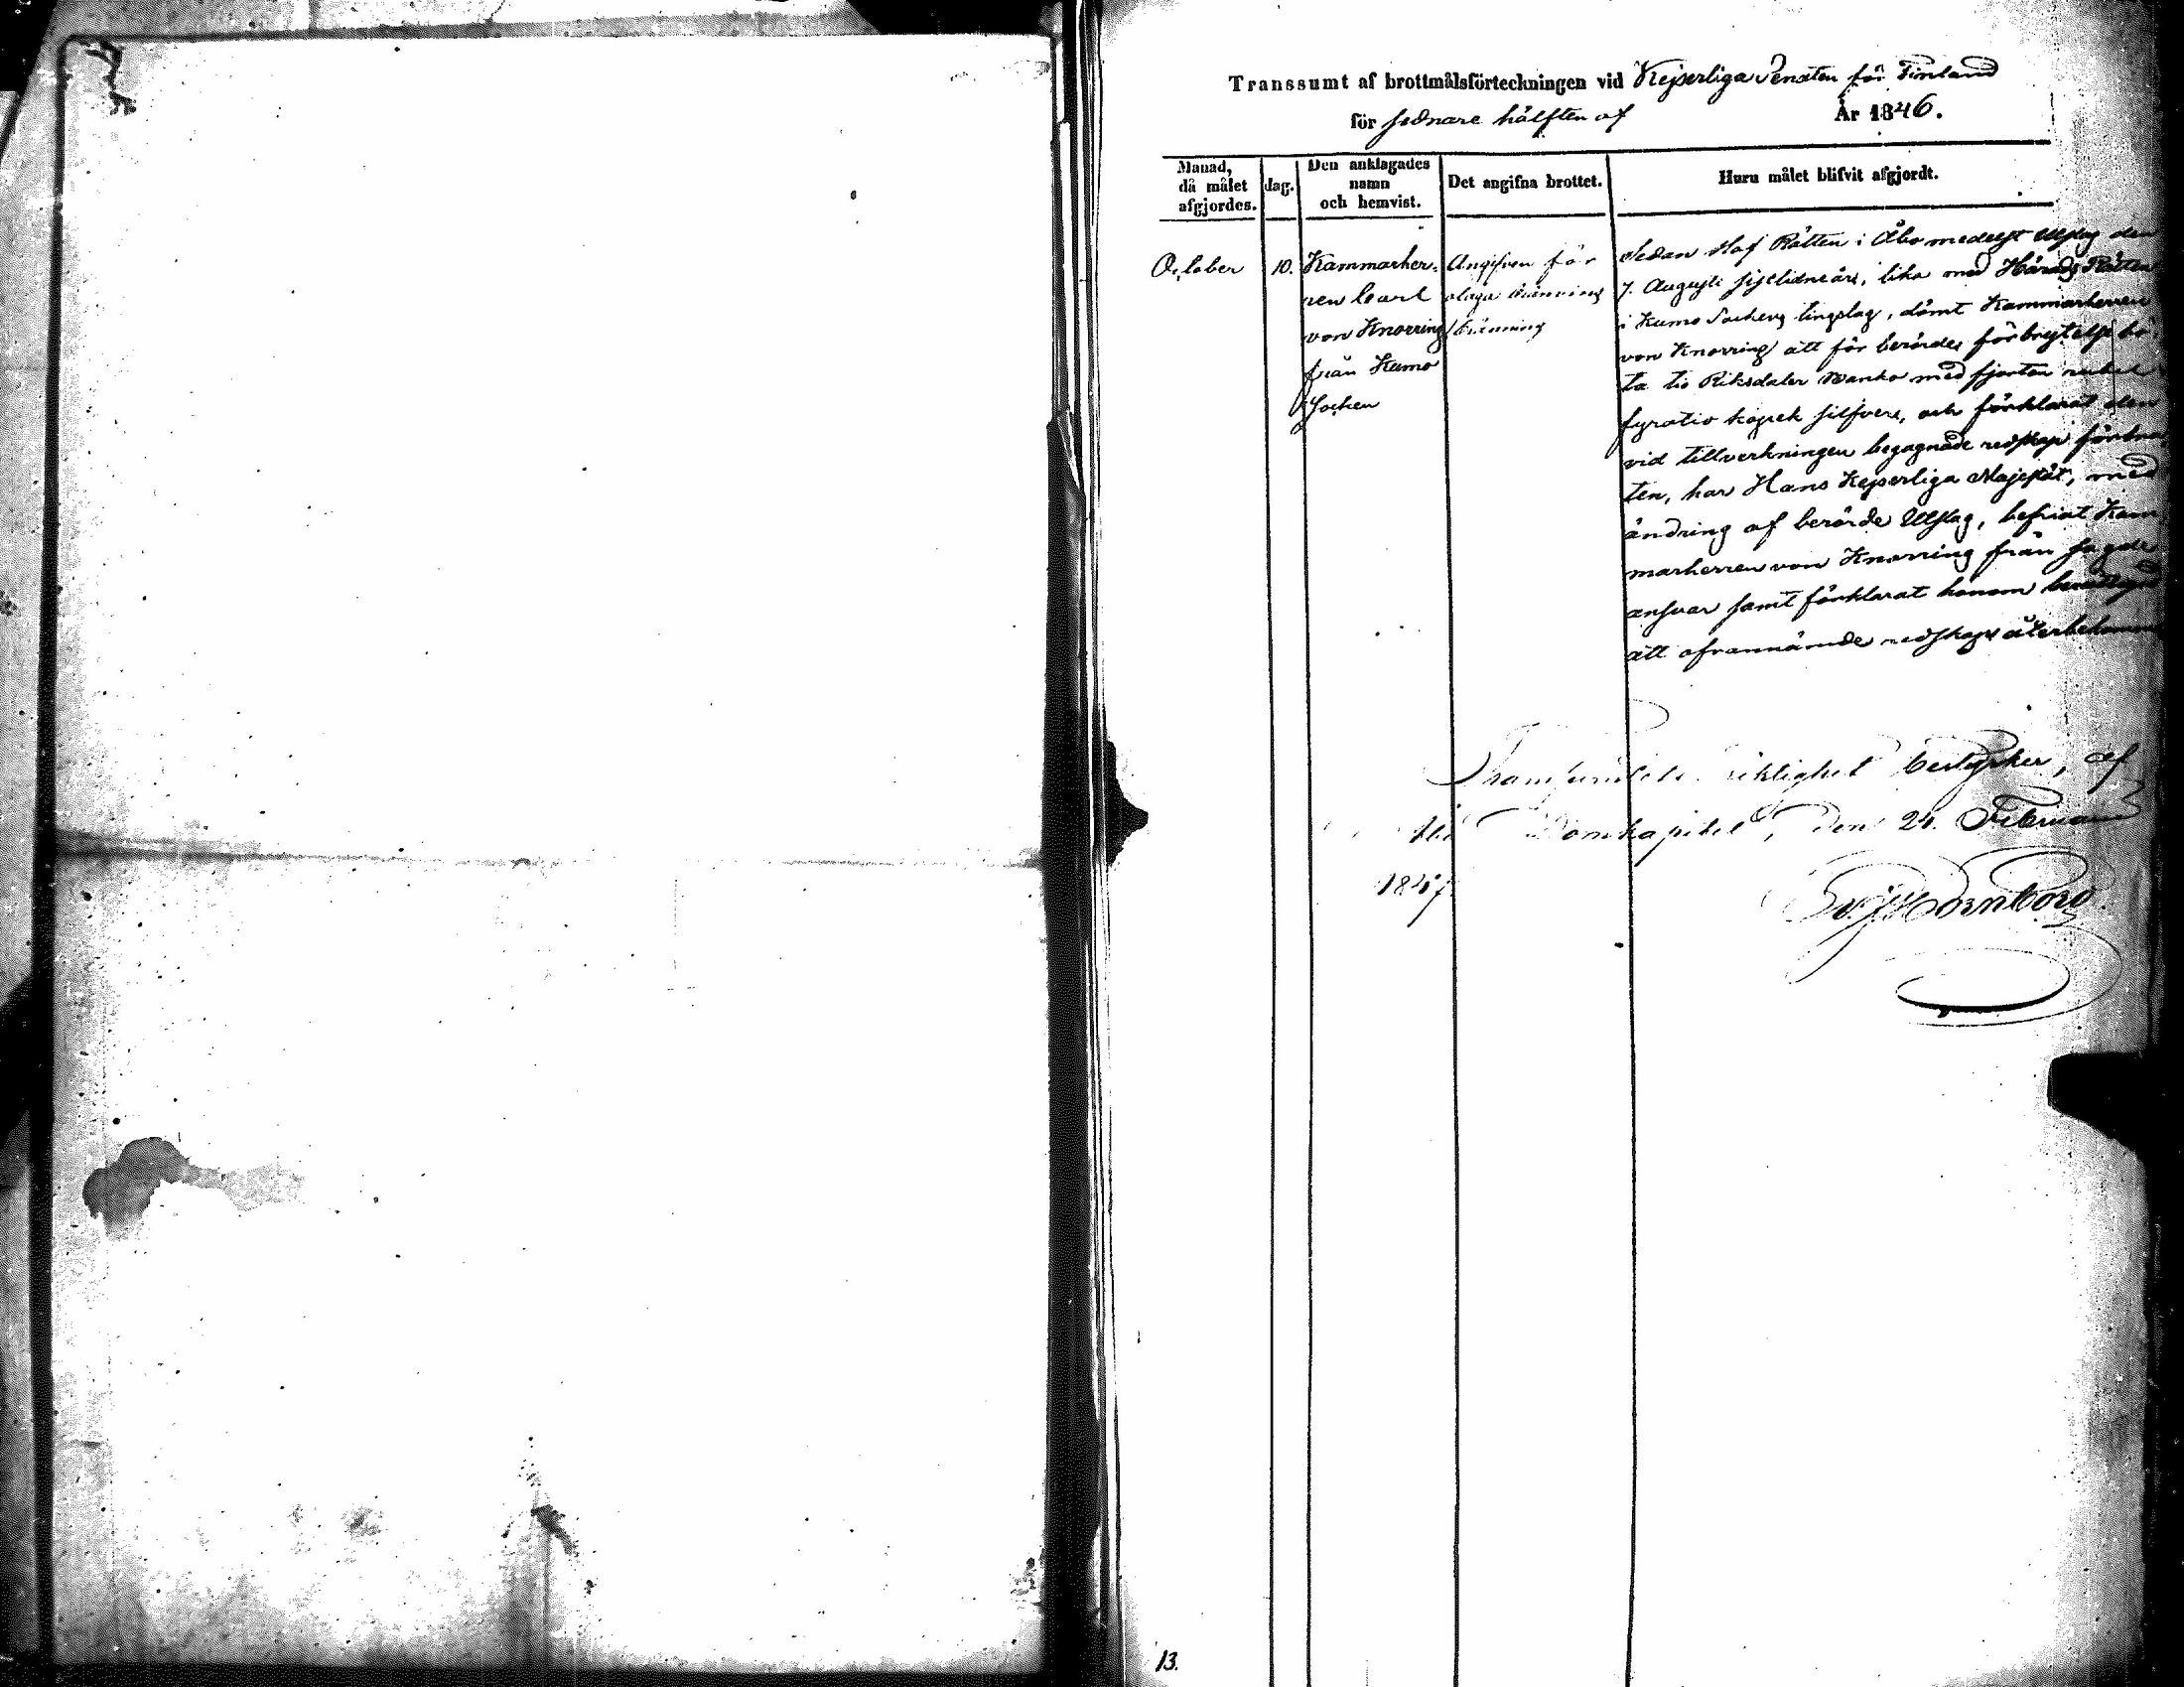 Transsumt af brottmålsförteckningen vid Kejserliga Senaten för Finland
för sednare hälften af År 1846.
Manad, då målet afgjordes.
dag.
Den anklagades namn och hemvist.
Det angifna brottet.
Huru målet blifvit afgjordt.
October
10.
Kammarher-
ren Carl
von Knorring
från Kumo
Socken
Angifven för
olaga
bränning
Sedan Hof Rätten i Åbo medelst Utslag den
7. Augusti sistlidne år, lika med Härads Rätten
i Kumo Sockens tingslag, dömt Kammarherren
von Knorring att för berörde förbrytelse bö-
ta tio Riksdaler Banko med fjorton rubel
fyratio kopek silfver, och förklarat den
vid tillverkningen begagnade redskap förbru-
ten, har Hans Kejserliga Majestät, med
ändring af berörde Utslag, befriat Kam-
marherren von Knorring från sagde
ansvar samt förklarat honom berättigad
att ofvannämnde redskap återbekomma
Transsumtets riktighet bestyrker, af
Åbo Domkapitel, den 24. Februarii
1847.
13.